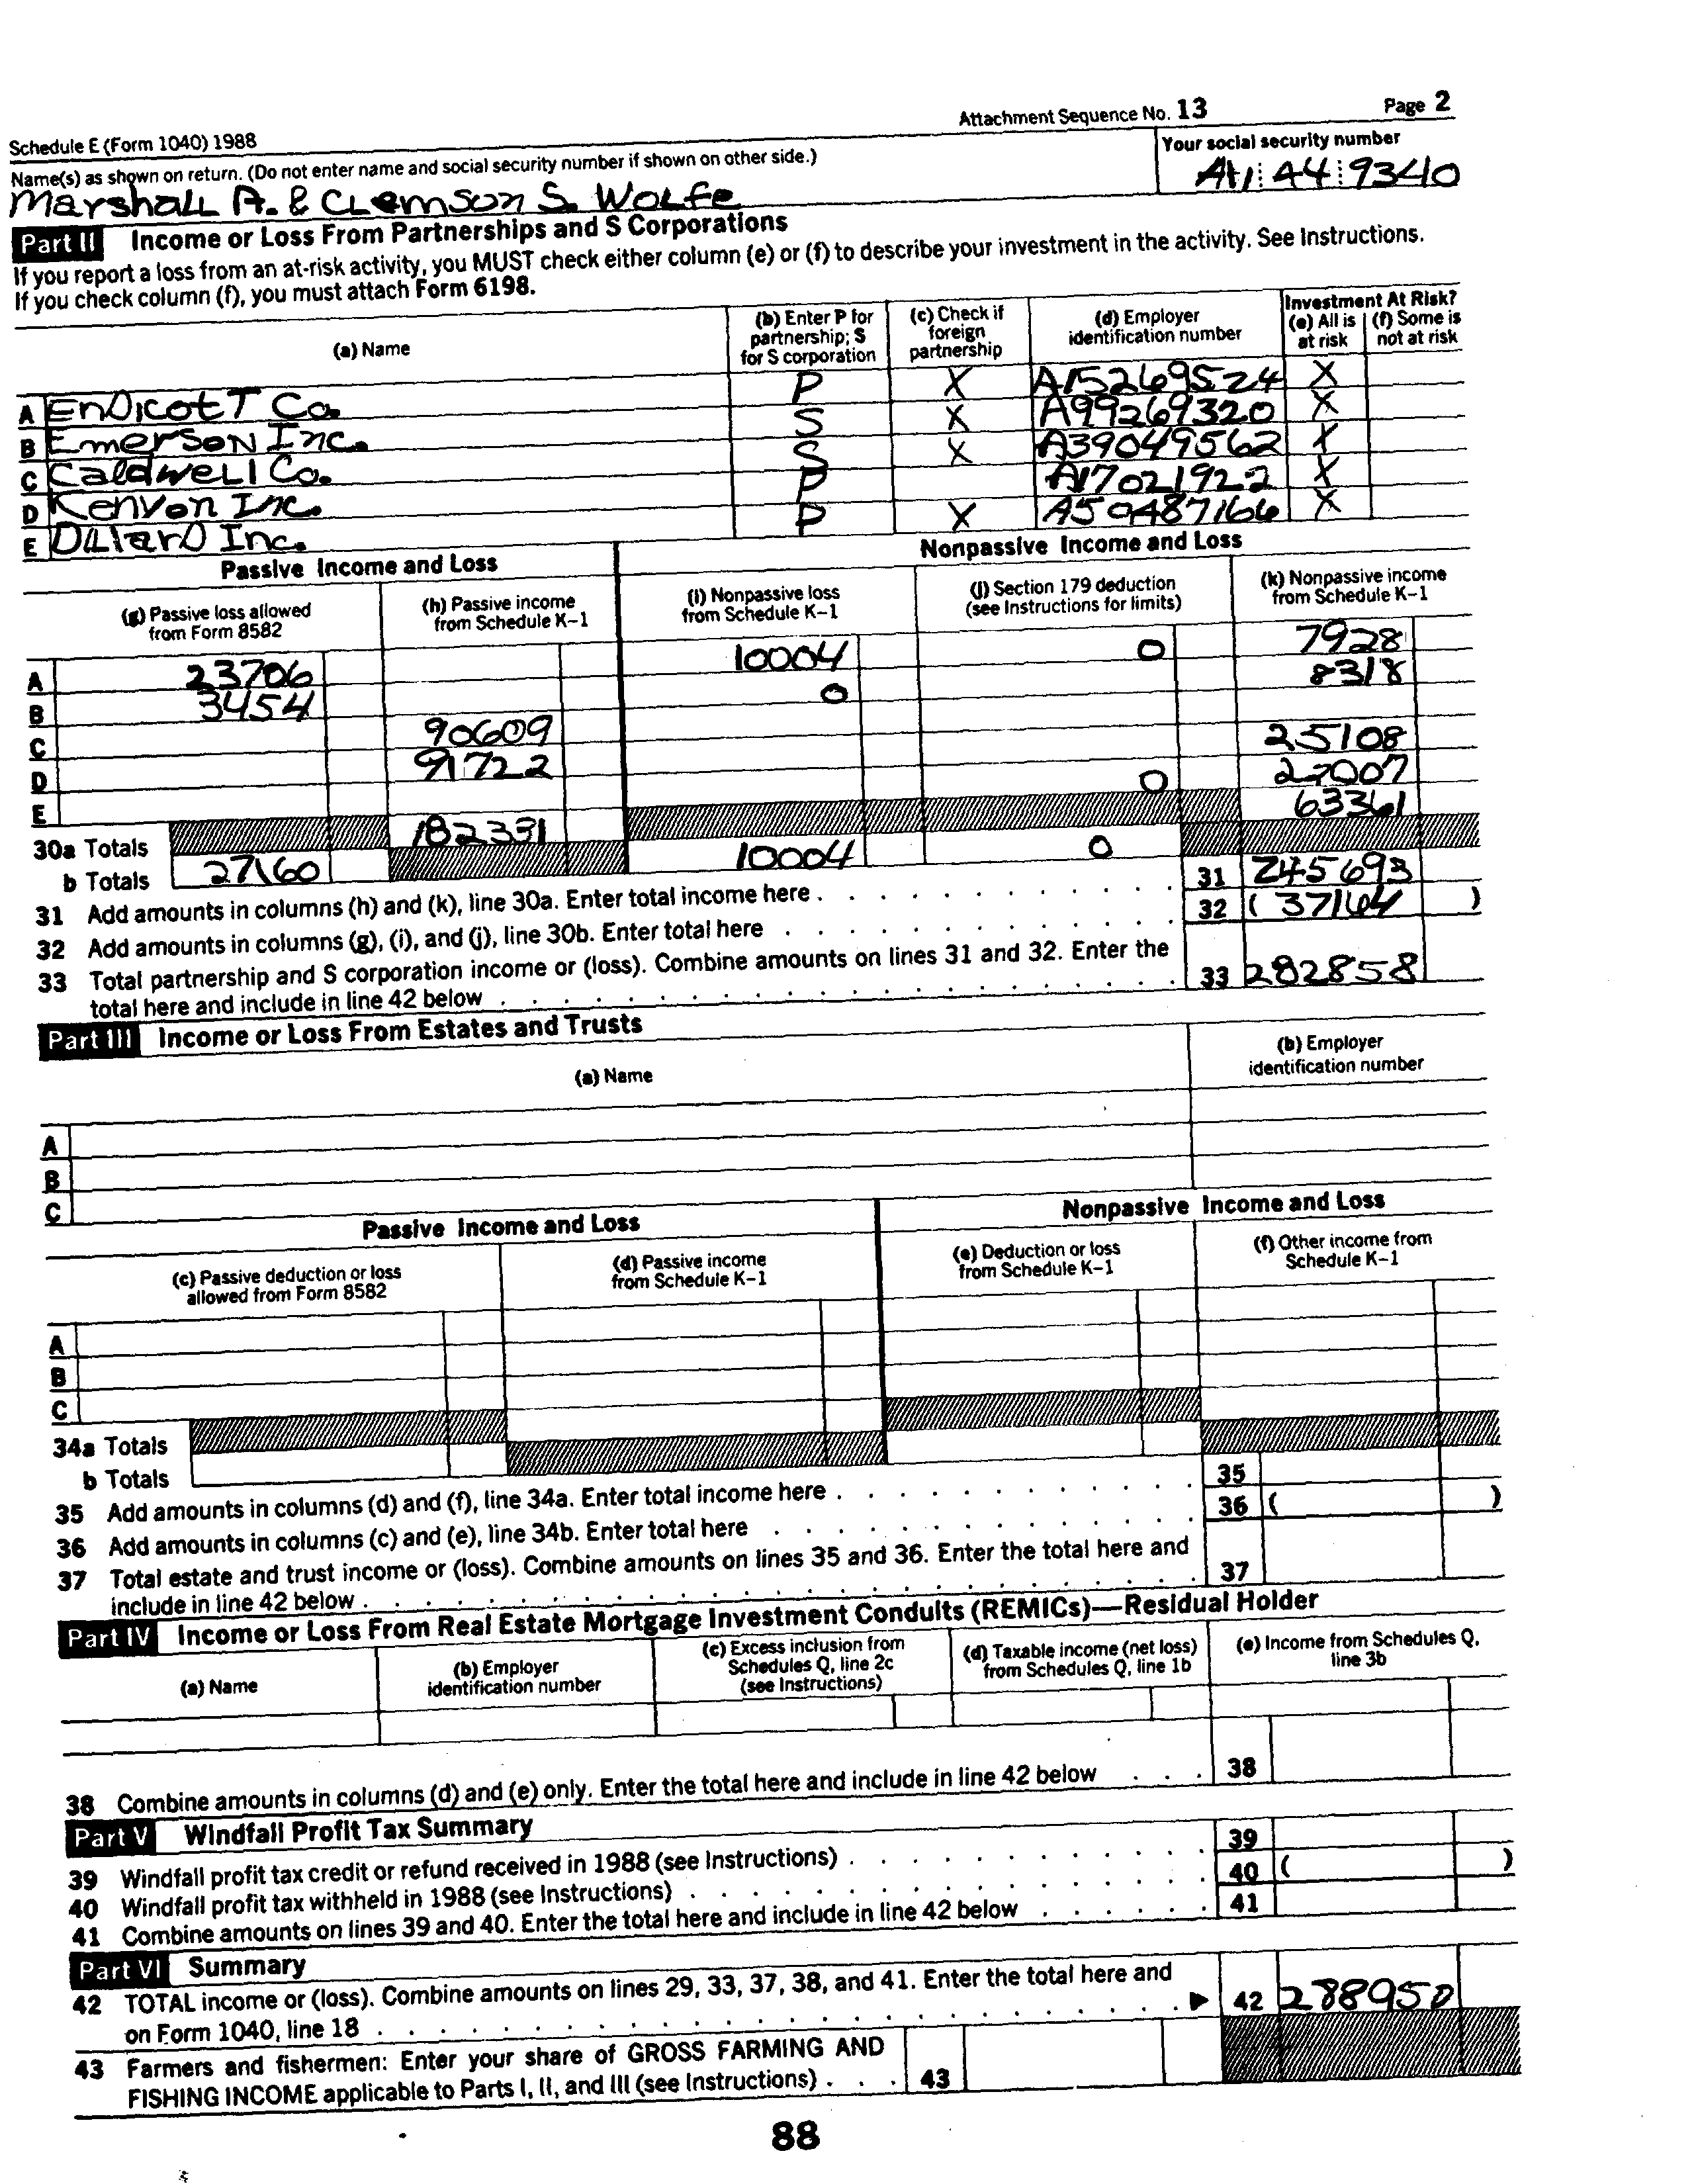 Attachment Sequence No. 13 Page 2
Schedule E (Form 1040) 1988
Name(s) as shown on return. (Do not enter name and social security number if shown on other side.)
Your social security number
Marshall A. & Clemson S. Wolfe
A4 9340
Part II Income or Loss From Partnerships and S Corporations
If you report a loss from an at-risk activity, you MUST check either column (e) or (f) to describe your investment in the activity. See Instructions.
If you check column (f), you must attach Form 6198.
(a) Name
(b) Enter P for partnership; S for S corporation
(c) Check if foreign partnership
(d) Employer identification number
Investment At Risk?
(e) All is at risk
(f) Some is not at risk
A Endicott Co. P X A15269524 X
B Emerson Inc. S X A99269320 X
C Caldwell Co. S X A39049562 X
D Kenyon Inc. P A17021922 X
E Dillard Inc. P X A59487166 X
Passive Income and Loss
Nonpassive Income and Loss
(g) Passive loss allowed from Form 8582
(h) Passive income from Schedule K-1
(i) Nonpassive loss from Schedule K-1
(j) Section 179 deduction (see Instructions for limits)
(k) Nonpassive income from Schedule K-1
A 23706 10004 0 7928
B 3454 0 8318
C 90609
D 91722 25108
E 0 27007
30a Totals 182331 63361
b Totals 27160 10004 0
31 Add amounts in columns (h) and (k), line 30a. Enter total income here 31 245693
32 Add amounts in columns (g), (i), and (j), line 30b. Enter total here 32 ( 37164 )
33 Total partnership and S corporation income or (loss). Combine amounts on lines 31 and 32. Enter the
total here and include in line 42 below 33 282858
Part III Income or Loss From Estates and Trusts
(a) Name
(b) Employer identification number
A
B
C
Passive Income and Loss
Nonpassive Income and Loss
(c) Passive deduction or loss allowed from Form 8582
(d) Passive income from Schedule K-1
(e) Deduction or loss from Schedule K-1
(f) Other income from Schedule K-1
A
B
C
34a Totals
b Totals
35 Add amounts in columns (d) and (f), line 34a. Enter total income here 35
36 Add amounts in columns (c) and (e), line 34b. Enter total here 36 ( )
37 Total estate and trust income or (loss). Combine amounts on lines 35 and 36. Enter the total here and
include in line 42 below 37
Part IV Income or Loss From Real Estate Mortgage Investment Conduits (REMICs)—Residual Holder
(a) Name
(b) Employer identification number
(c) Excess inclusion from Schedules Q, line 2c (see Instructions)
(d) Taxable income (net loss) from Schedules Q, line 1b
(e) Income from Schedules Q, line 3b
38 Combine amounts in columns (d) and (e) only. Enter the total here and include in line 42 below 38
Part V Windfall Profit Tax Summary
39 Windfall profit tax credit or refund received in 1988 (see Instructions) 39
40 Windfall profit tax withheld in 1988 (see Instructions) 40 ( )
41 Combine amounts on lines 39 and 40. Enter the total here and include in line 42 below 41
Part VI Summary
42 TOTAL income or (loss). Combine amounts on lines 29, 33, 37, 38, and 41. Enter the total here and
on Form 1040, line 18 ▶ 42 288950
43 Farmers and fishermen: Enter your share of GROSS FARMING AND
FISHING INCOME applicable to Parts I, II, and III (see Instructions) 43
88